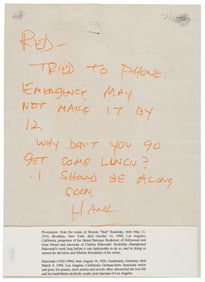 RED—
TRIED TO PHONE.
EMERGENCY. MAY
NOT MAKE IT BY
12.
WHY DON'T YOU GO
GET SOME LUNCH?
I SHOULD BE ALONG
SOON,
HANK
Provenance: from the estate of Sholom "Red" Stodolsky, born May 21,
1916, Brooklyn, New York; died October 16, 1998, Los Angeles,
California, proprietor of the famed Baroque Bookstore of Hollywood and
close friend and associate of Charles Bukowski. Stodolsky
Bukowski's work long before it was fashionable to do so, and in doing so
earned the devotion and lifetime friendship of the writer.
Bukowski (1920-1994), born August 16, 1920, Andernach, Germany; died
March 9, 1994, Los Angeles, California, German-born American writer
and poet, his poetry, short stories and novels often chronicled the low-life
and his hard-bitten alcoholic youth and